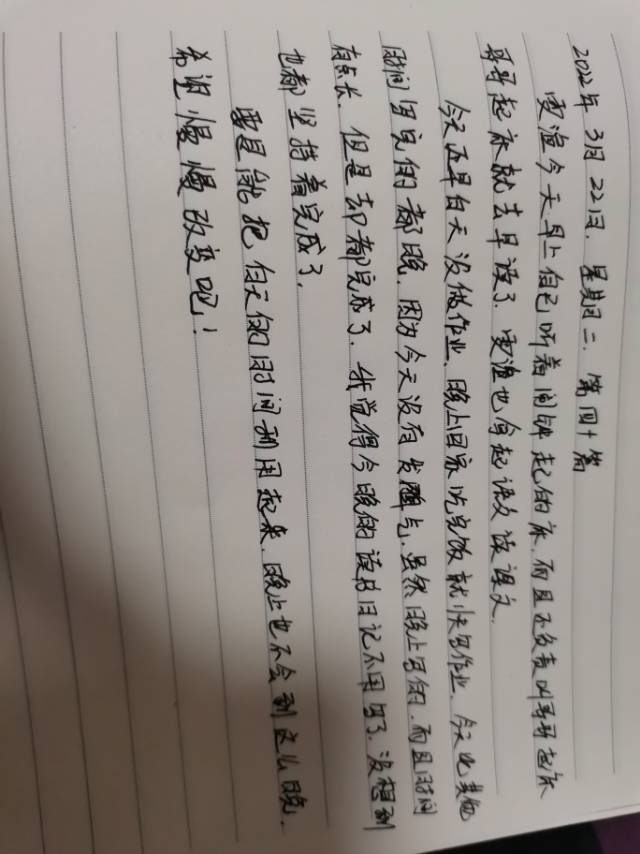 2022年 3月 22日. 星期二. 第四十篇
雯渲今天早上自己听着闹钟起的床.而且还负责叫哥哥起床
哥哥起床就去早读了.雯渲也拿起语文读课文.
今天还是白天没做作业.晚上回家吃完饭就快写作业.今天比其他
时间写完的都晚.因为今天没有发脾气.虽然晚上写的.而且时间
有点长.但是却都完成了.我觉得今晚的读书日记不用写了.没想到
也都坚持着完成了.
要是能把白天的时间利用起来.晚上也不会到这么晚.
希望慢慢改变吧!